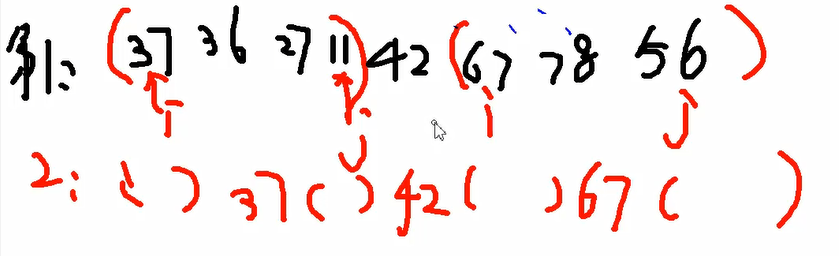 第1: (37 36 27 11) 42 (67 78 56)
i j i j
2: ( ) 37 ( ) 42 ( ) 67 ( )